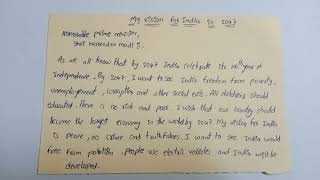 My vision for India In 2047
Honorable prime minister,
Shri Narendra modi Ji,
As we all know that by 2047 India celebrate its 100th year of
Independence. By 2047, I want to see India freedom from poverty,
unemployement, corruption and other social evils. All children should
educated. There is no rich and poor. I wish that our country should
become the largest economy in the world by 2047. My vision for India
is peace, no crime and truthfulness. I want to see India would
free from polution, people use electric vehicles and India well be
developed.